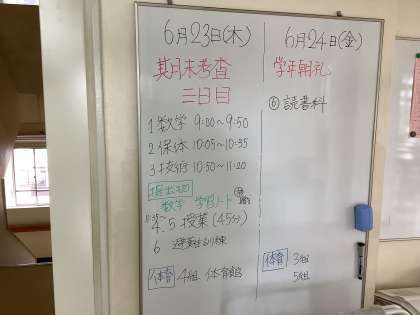 6月23日(木)
期末考査
三日目
1 数学 9:00～9:50
2 保体 10:05～10:35
3 技術 10:50～11:20
提出物
数学 学習ノート
4.5 授業(45分)
6
体育 4組 体育館
6月24日(金)
学年朝礼
⑥ 読書科
体育 3組
5組